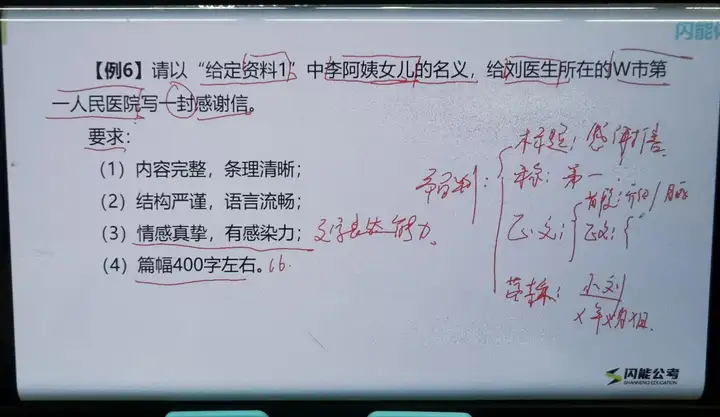 闪能
【例6】请以“给定资料1”中李阿姨女儿的名义，给刘医生所在的W市第
一人民医院写一封感谢信。
要求：
（1）内容完整，条理清晰；
（2）结构严谨，语言流畅；
（3）情感真挚，有感染力；文字表达能力
（4）篇幅400字左右。16.
标题：感谢信
称：第一：
正文：
落款：小刘
X年X月X日
闪能公考
SHANNENG EDUCATION